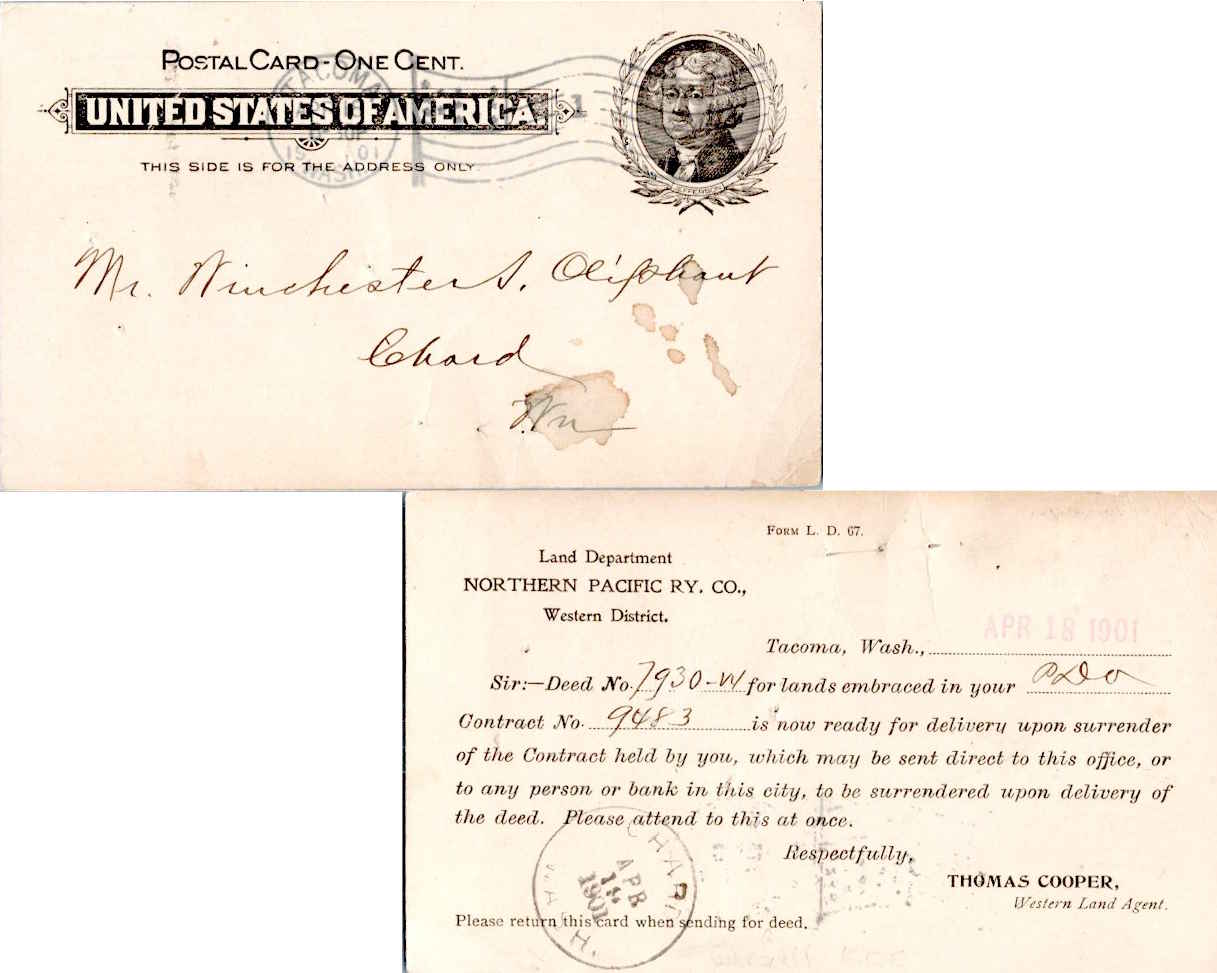 POSTAL CARD - ONE CENT.
UNITED STATES OF AMERICA.
THIS SIDE IS FOR THE ADDRESS ONLY.
TACOMA
WASH
01
1
JEFFERSON
Mr. Winchester S. Oliphant
Chard
Wn
FORM L. D. 67.
Land Department
NORTHERN PACIFIC RY. CO.,
Western District.
Tacoma, Wash., APR 18 1901
Sir:—Deed No. 7930-W for lands embraced in your
Contract No. 9483 is now ready for delivery upon surrender
of the Contract held by you, which may be sent direct to this office, or
to any person or bank in this city, to be surrendered upon delivery of
the deed. Please attend to this at once.
Respectfully,
THOMAS COOPER,
Western Land Agent.
Please return this card when sending for deed.
CHARD
APR
1901
WASH.